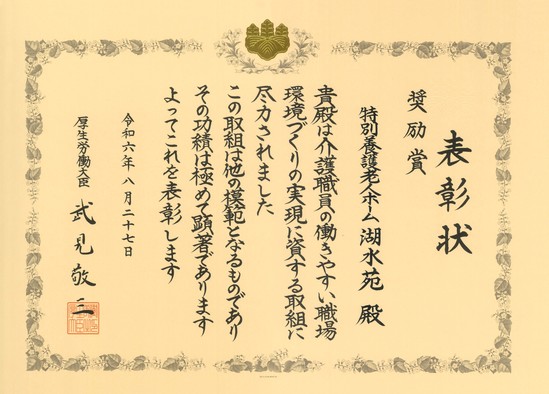 表彰状
奨励賞
特別養護老人ホーム 湖水苑 殿
貴殿は介護職員の働きやすい職場
環境づくりの実現に資する取組に
尽力されました
この取組は他の模範となるものであり
その功績は極めて顕著であります
よってこれを表彰します
令和六年八月二十七日
厚生労働大臣 武見敬三